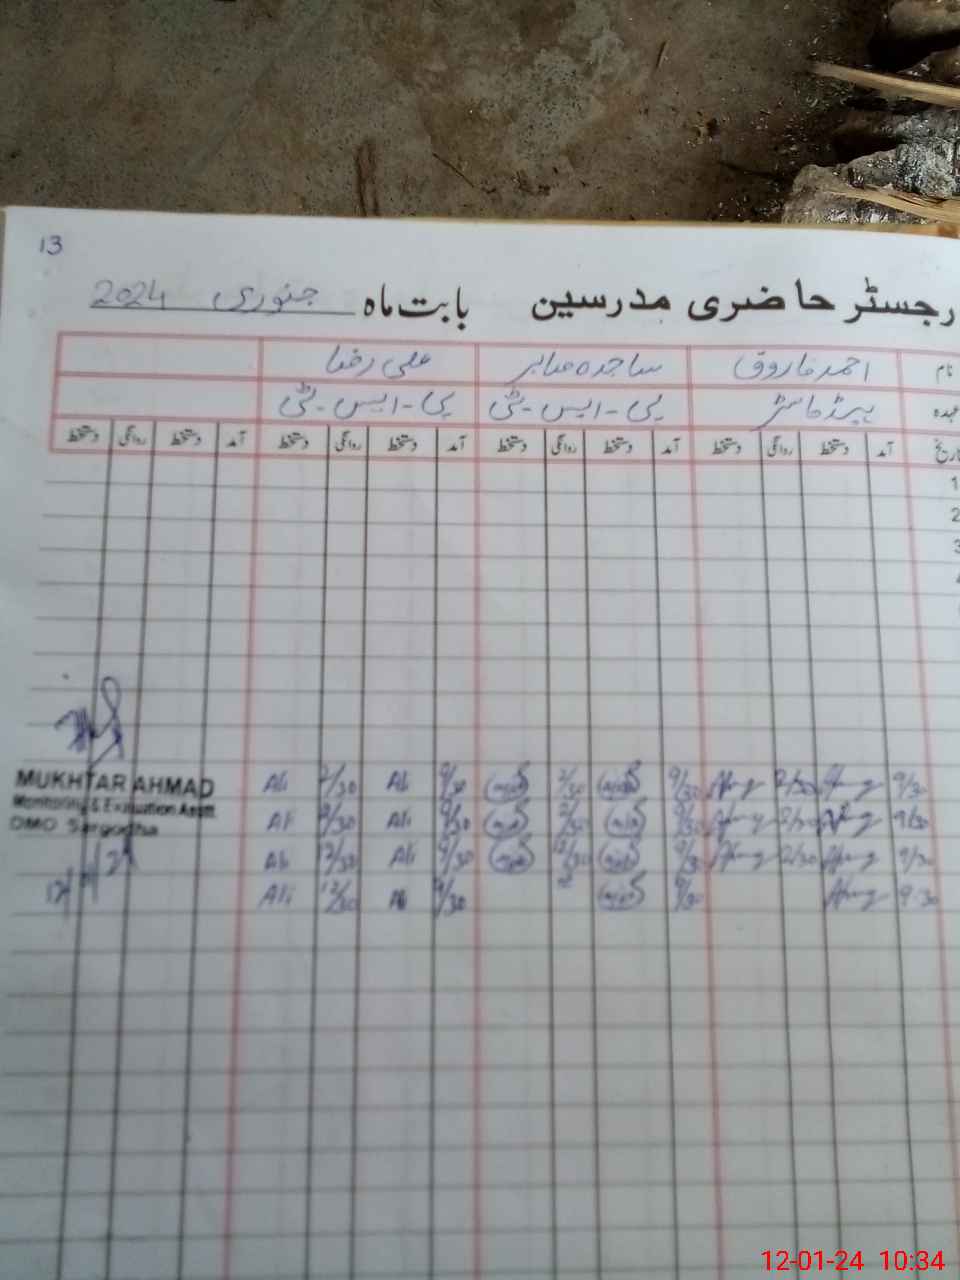 13
رجسٹر حاضری مدرسین بابت ماہ جنوری 2024
نام احمد فاروق ساجدہ صابر علی رضا
عہدہ ہیڈ ماسٹر پی-ایس-ٹی پی-ایس-ٹی
تاریخ آمد دستخط روانگی دستخط آمد دستخط روانگی دستخط آمد دستخط روانگی دستخط آمد دستخط روانگی دستخط
1
2
3
4
9/30 2/30 9/30 2/30 Ali 9/30 Ali 2/30 Ali
MUKHTAR AHMAD
9/30 2/30 9/30 2/30 9/30 Ali 2/30 Ali
Monitoring & Evaluation Asstt.
DMO Sargodha
9/30 2/30 9/30 12/30 9/30 Ali 12/30 Ali
9:30 9/30 9/30 Ali 12/30 Ali
12-01-24 10:34